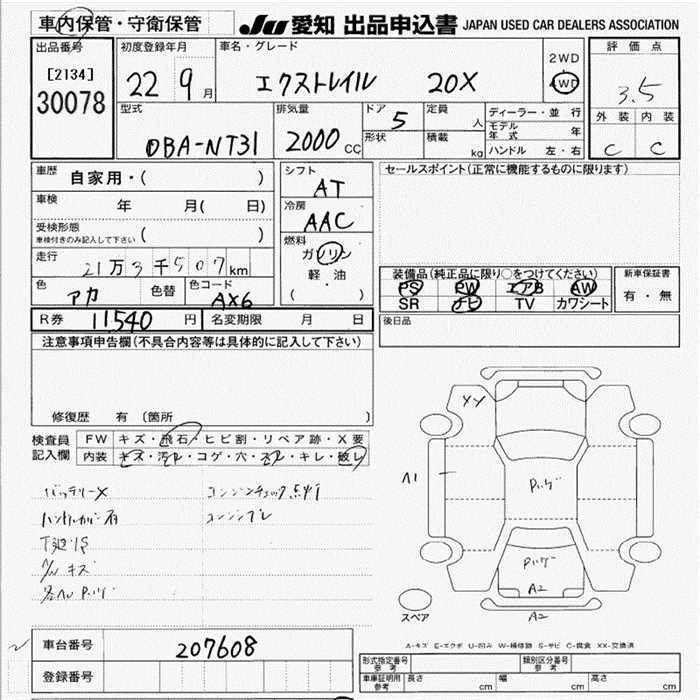 車内保管・守衛保管
JU 愛知 出品申込書 JAPAN USED CAR DEALERS ASSOCIATION
出品番号 [2134] 30078
初度登録年月 22 9月
車名・グレード エクストレイル 20X
2WD 4WD
評価点 3.5
外装 内装 C C
型式 DBA-NT31
排気量 2000 CC
ドア 5 形状
定員 人 積載 kg
ディーラー・並行
モデル年式 年
ハンドル 左・右
車歴 自家用・( )
車検 年 月( 日)
受検形態 車検付きのみ記入して下さい ( )
走行 21万3千507km
色 アカ 色替 色コード AX6
シフト AT
冷房 AAC
燃料 ガソリン 軽油 ( ・ )
セールスポイント(正常に機能するものに限ります)
装備品(純正品に限り○をつけてください)
PS PW エアB AW
SR ナビ TV カワシート
新車保証書 有・無
R券 11,540 円 名変期限 月 日
後日品
注意事項申告欄(不具合内容等は具体的に記入して下さい)
修復歴 有 〔箇所 〕
検査員記入欄
FW キズ・飛石・ヒビ割・リペア跡・X要
内装 キズ・汚レ・コゲ・穴・スレ・キレ・破レ
バッテリーX エンジンチェック点灯
ハンドルカバー有 エンジンブレ
下廻りS
キズ
XY
A1
Pハゲ
Pハゲ
A2
A2
スペア
A-キズ E-エクボ U-凹み W-補修跡 S-サビ C-腐食 XX-交換済
車台番号 207608
登録番号
形式指定番号 参考 類別区分番号 参考
車庫証明用 参考 長さ cm 幅 cm 高さ cm